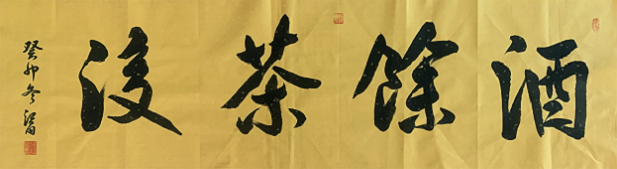 酒餘茶後
癸卯冬